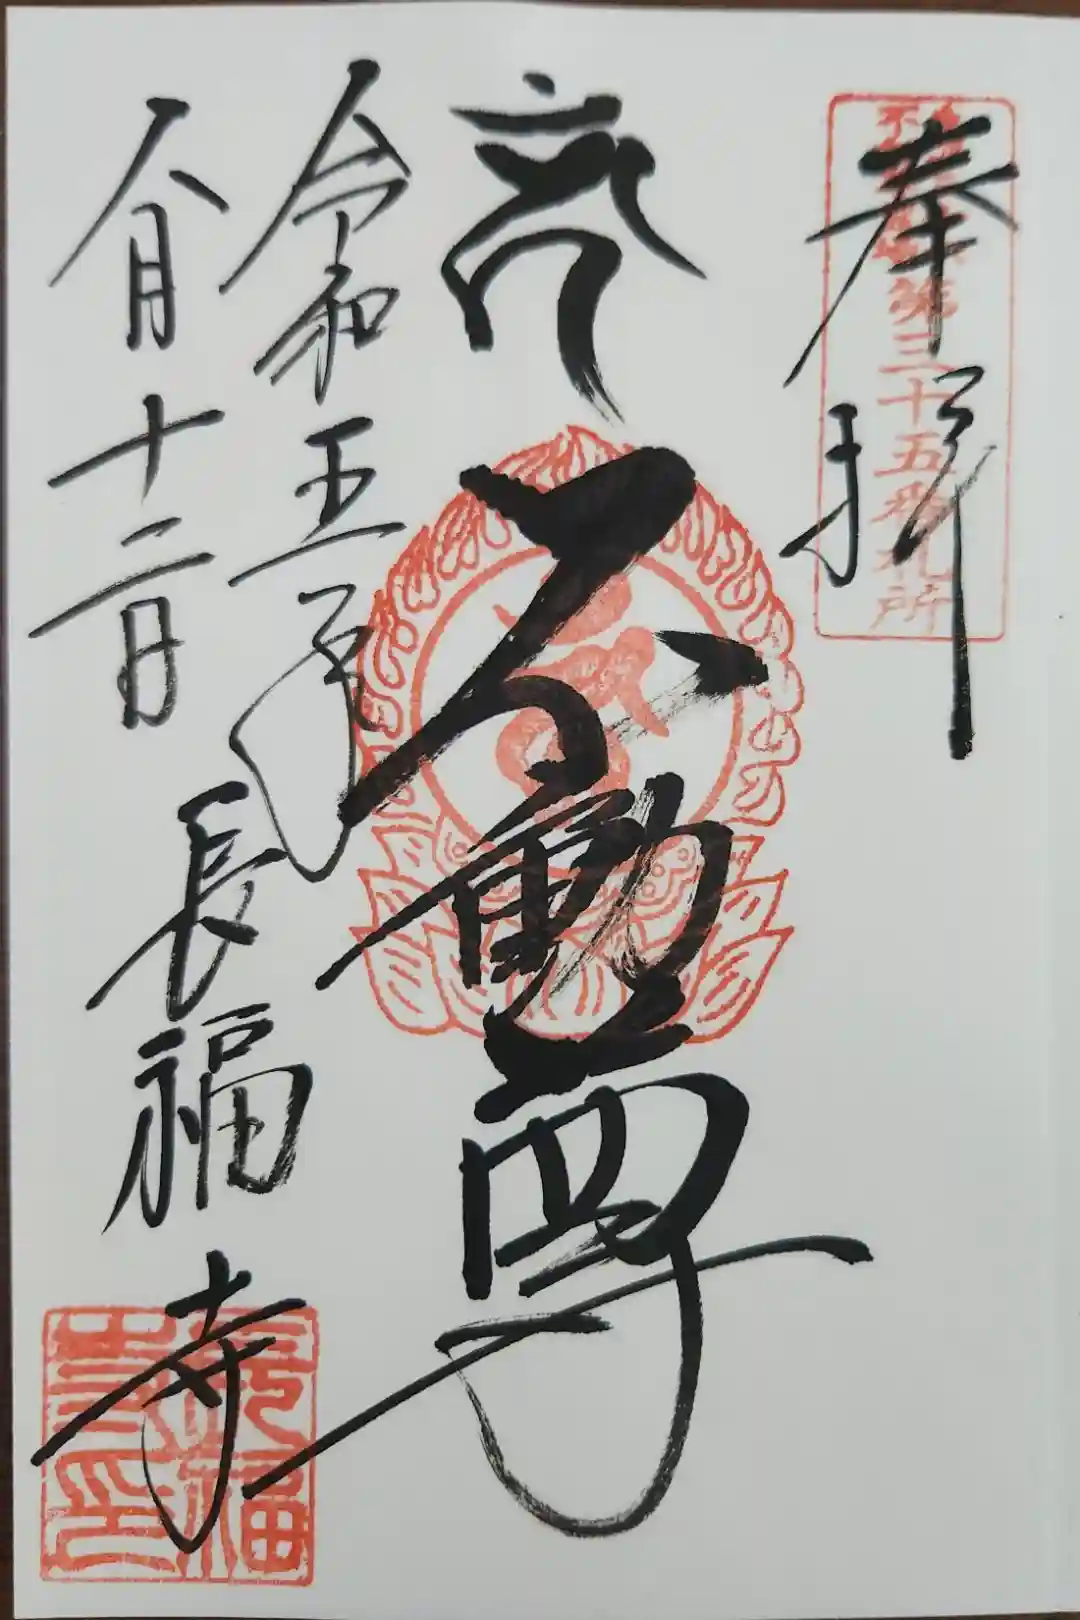 奉拝
第三十五番札所
不動尊
令和五年
八月十二日
長福寺
長福寺印